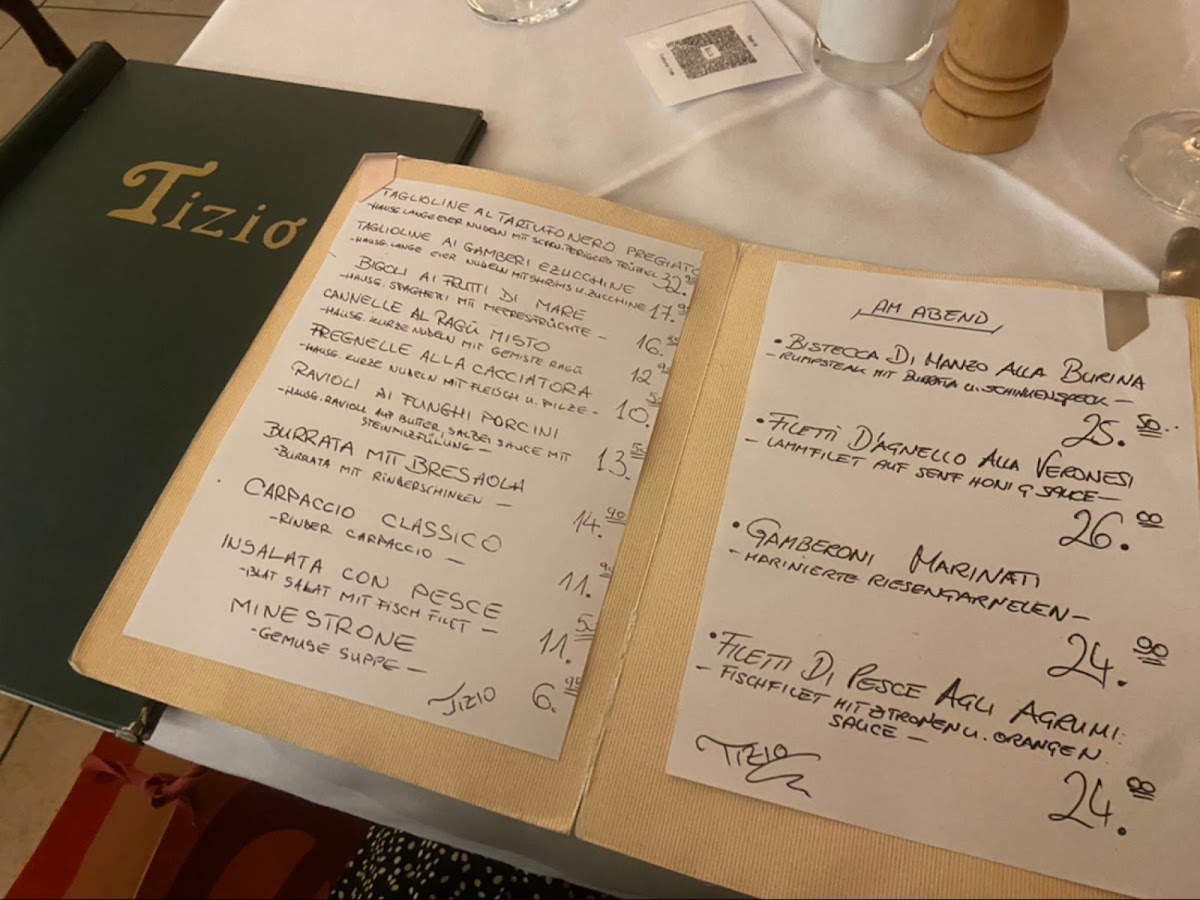 Tizio
TAGLIOLINE AL TARTUFO NERO PREGIATO
-HAUSG. LANGE EIER NUDELN MIT SCHW. PERIGORD TRÜFFEL 32.90
TAGLIOLINE AI GAMBERI E ZUCCHINE
-HAUSG. LANGE EIER NUDELN MIT SHRIMS U. ZUCCHINE 17.90
BIGOLI AI FRUTTI DI MARE
-HAUSG. SPAGHETTI MIT MEERESFRÜCHTE - 16.
CANNELLE AL RAGÙ MISTO
-HAUSG. KURZE NUDELN MIT GEMISTE RAGÙ 12.90
FREGNELLE ALLA CACCIATORA
-HAUSG. KURZE NUDELN MIT FLEISCH U. PILZE - 10.50
RAVIOLI AI FUNGHI PORCINI
-HAUSG. RAVIOLI AUF BUTTER, SALBEI SAUCE MIT
STEINPILZFÜLUNG - 13.50
BURRATA MIT BRESAOLA
-BURRATA MIT RINDERSCHINKEN - 14.90
CARPACCIO CLASSICO
-RINDER CARPACCIO - 11.90
INSALATA CON PESCE
-BLAT SALAT MIT FISCH FILET - 11.50
MINESTRONE
-GEMUSE SUPPE - 6.95
TIZIO
AM ABEND
• BISTECCA DI MANZO ALLA BURINA
- RUMPSTEAK MIT BURRATA U. SCHINKENSPECK -
25.50
• FILETTI D'AGNELLO ALLA VERONESI
- LAMMFILET AUF SENF HONIG SAUCE -
26.00
• GAMBERONI MARINATI
- MARINIERTE RIESENGARNELEN -
24.90
• FILETTI DI PESCE AGLI AGRUMI
- FISCHFILET MIT ZITRONEN U. ORANGEN
SAUCE -
24.00
TIZIO